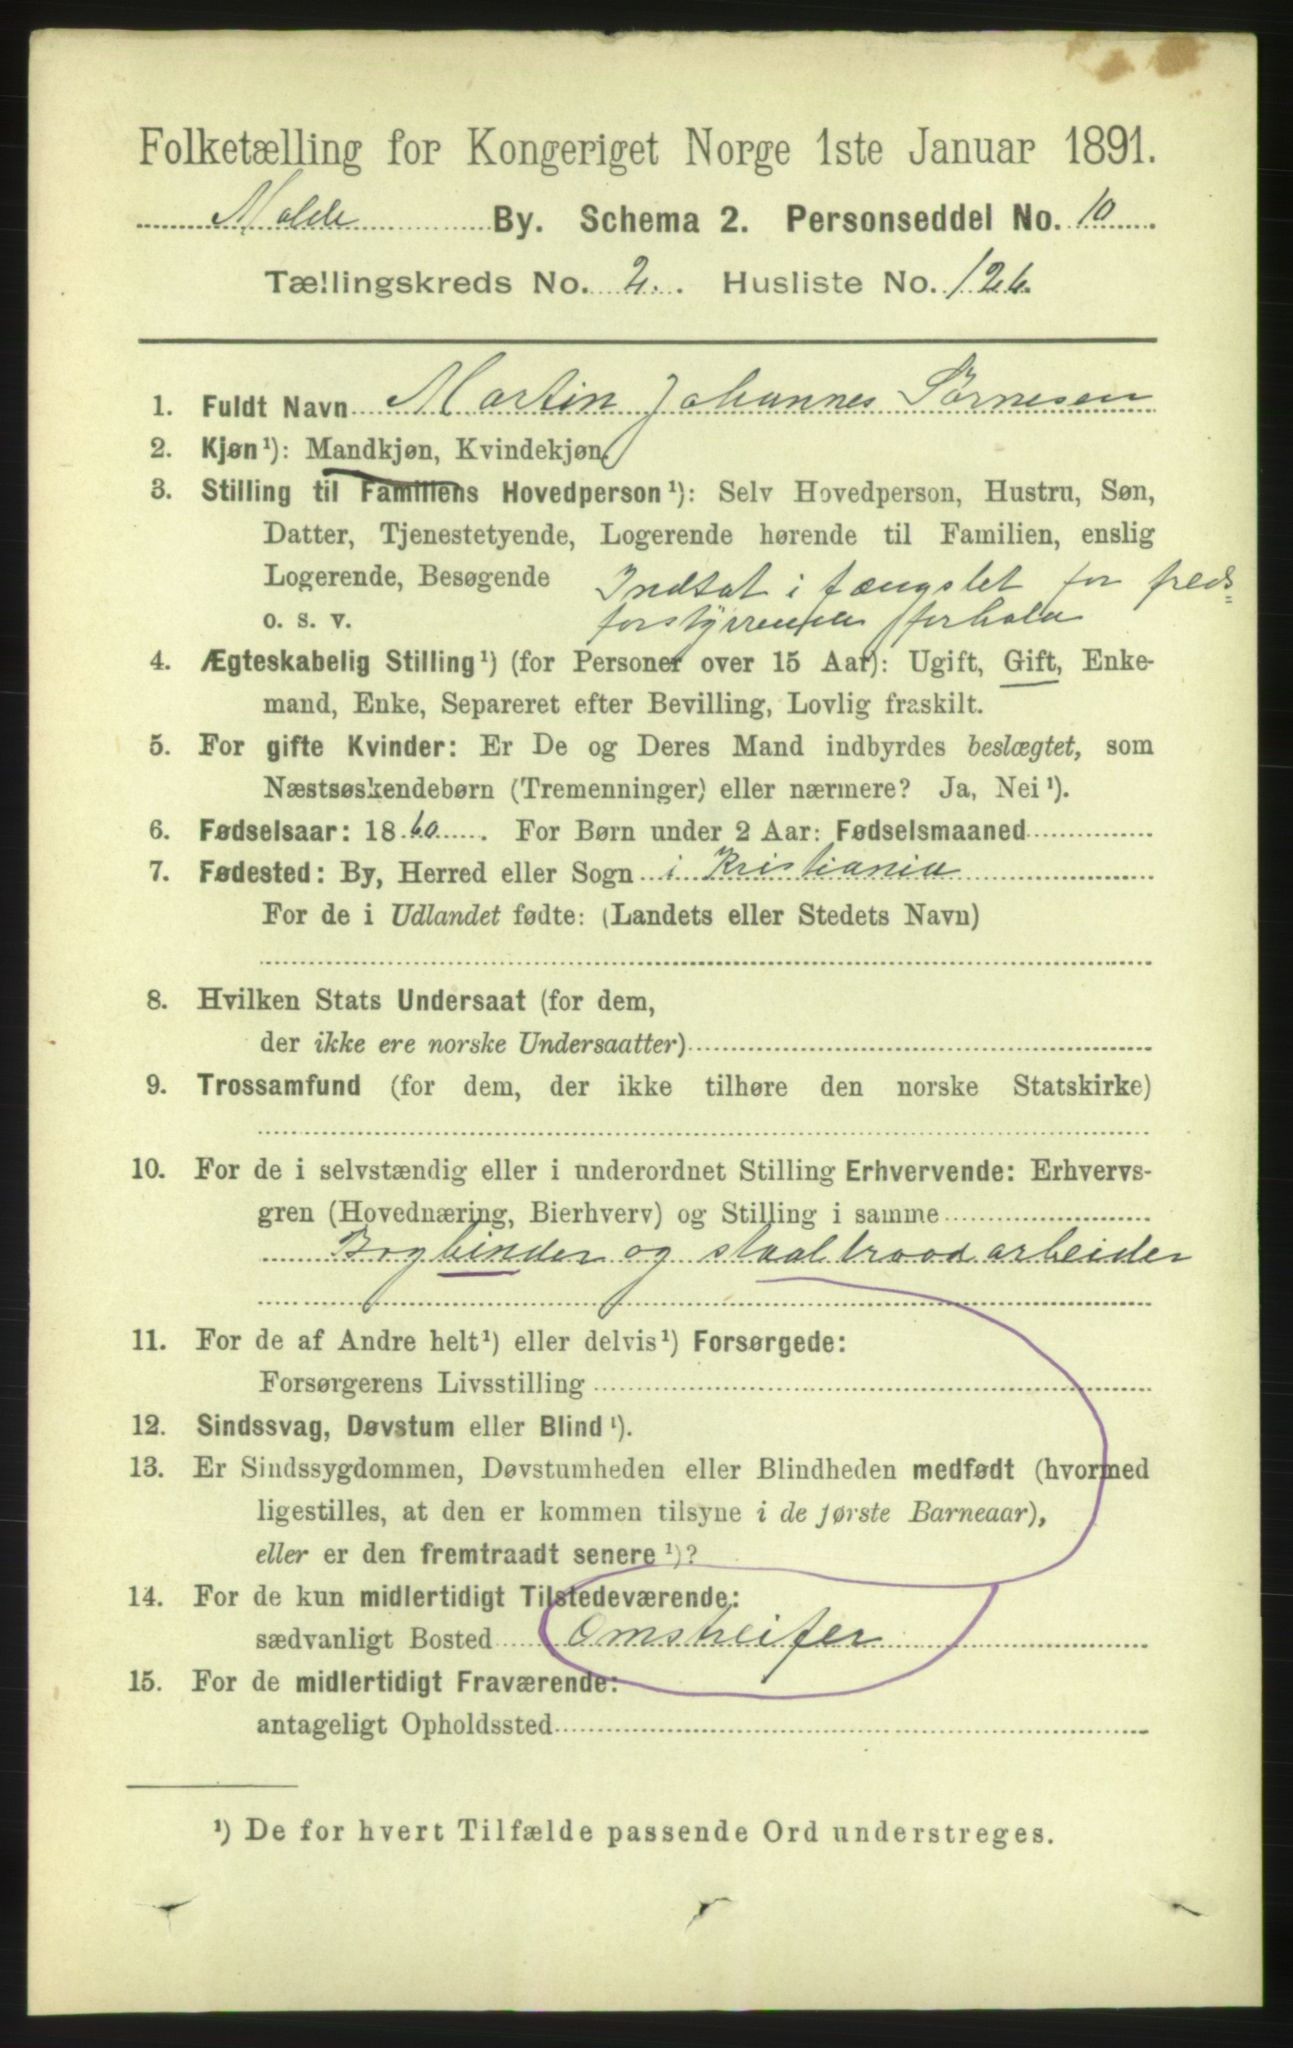 Folketælling for Kongeriget Norge 1ste Januar 1891.
Molde By. Schema 2. Personseddel No. 10
Tællingskreds No. 2. Husliste No. 126.
1. Fuldt Navn Martin Johannes Sørnesen
2. Kjøn¹): Mandkjøn, Kvindekjøn
3. Stilling til Familiens Hovedperson¹): Selv Hovedperson, Hustru, Søn,
Datter, Tjenestetyende, Logerende hørende til Familien, enslig
Logerende, Besøgende Indsat i fængslet for freds=
o. s. v. forstyrrende forhold
4. Ægteskabelig Stilling¹) (for Personer over 15 Aar): Ugift, Gift, Enke-
mand, Enke, Separeret efter Bevilling, Lovlig fraskilt.
5. For gifte Kvinder: Er De og Deres Mand indbyrdes beslægtet, som
Næstsøskendebørn (Tremenninger) eller nærmere? Ja, Nei¹).
6. Fødselsaar: 1860. For Børn under 2 Aar: Fødselsmaaned
7. Fødested: By, Herred eller Sogn i Kristiania
For de i Udlandet fødte: (Landets eller Stedets Navn)
8. Hvilken Stats Undersaat (for dem,
der ikke ere norske Undersaatter)
9. Trossamfund (for dem, der ikke tilhøre den norske Statskirke)
10. For de i selvstændig eller i underordnet Stilling Erhvervende: Erhvervs-
gren (Hovednæring, Bierhverv) og Stilling i samme
Bogbinder og staaltraadarbeider
11. For de af Andre helt¹) eller delvis¹) Forsørgede:
Forsørgerens Livsstilling
12. Sindssvag, Døvstum eller Blind¹).
13. Er Sindssygdommen, Døvstumheden eller Blindheden medfødt (hvormed
ligestilles, at den er kommen tilsyne i de første Barneaar),
eller er den fremtraadt senere¹)?
14. For de kun midlertidigt Tilstedeværende:
sædvanligt Bosted Omstreifer
15. For de midlertidigt Fraværende:
antageligt Opholdssted
¹) De for hvert Tilfælde passende Ord understreges.